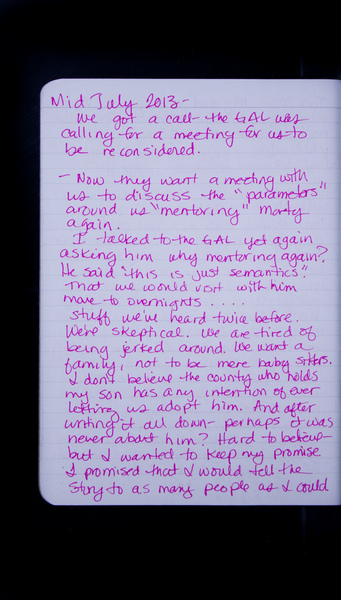 Mid July 2013-
We got a call the GAL was
calling for a meeting for us to
be reconsidered.
- Now they want a meeting with
us to discuss the "parameters"
around us "mentoring" Marty
again.
I talked to the GAL yet again
asking him why mentoring again?
He said "this is just semantics".
That we would visit with him
move to overnights ....
Stuff we've heard twice before.
We're skeptical. We are tired of
being jerked around. We want a
family, not to be mere baby sitters.
I don't believe the county who holds
my son has any intention of ever
letting us adopt him. And after
writing it all down- perhaps it was
never about him? Hard to believe
but I wanted to keep my promise
I promised that I would tell the
story to as many people as I could